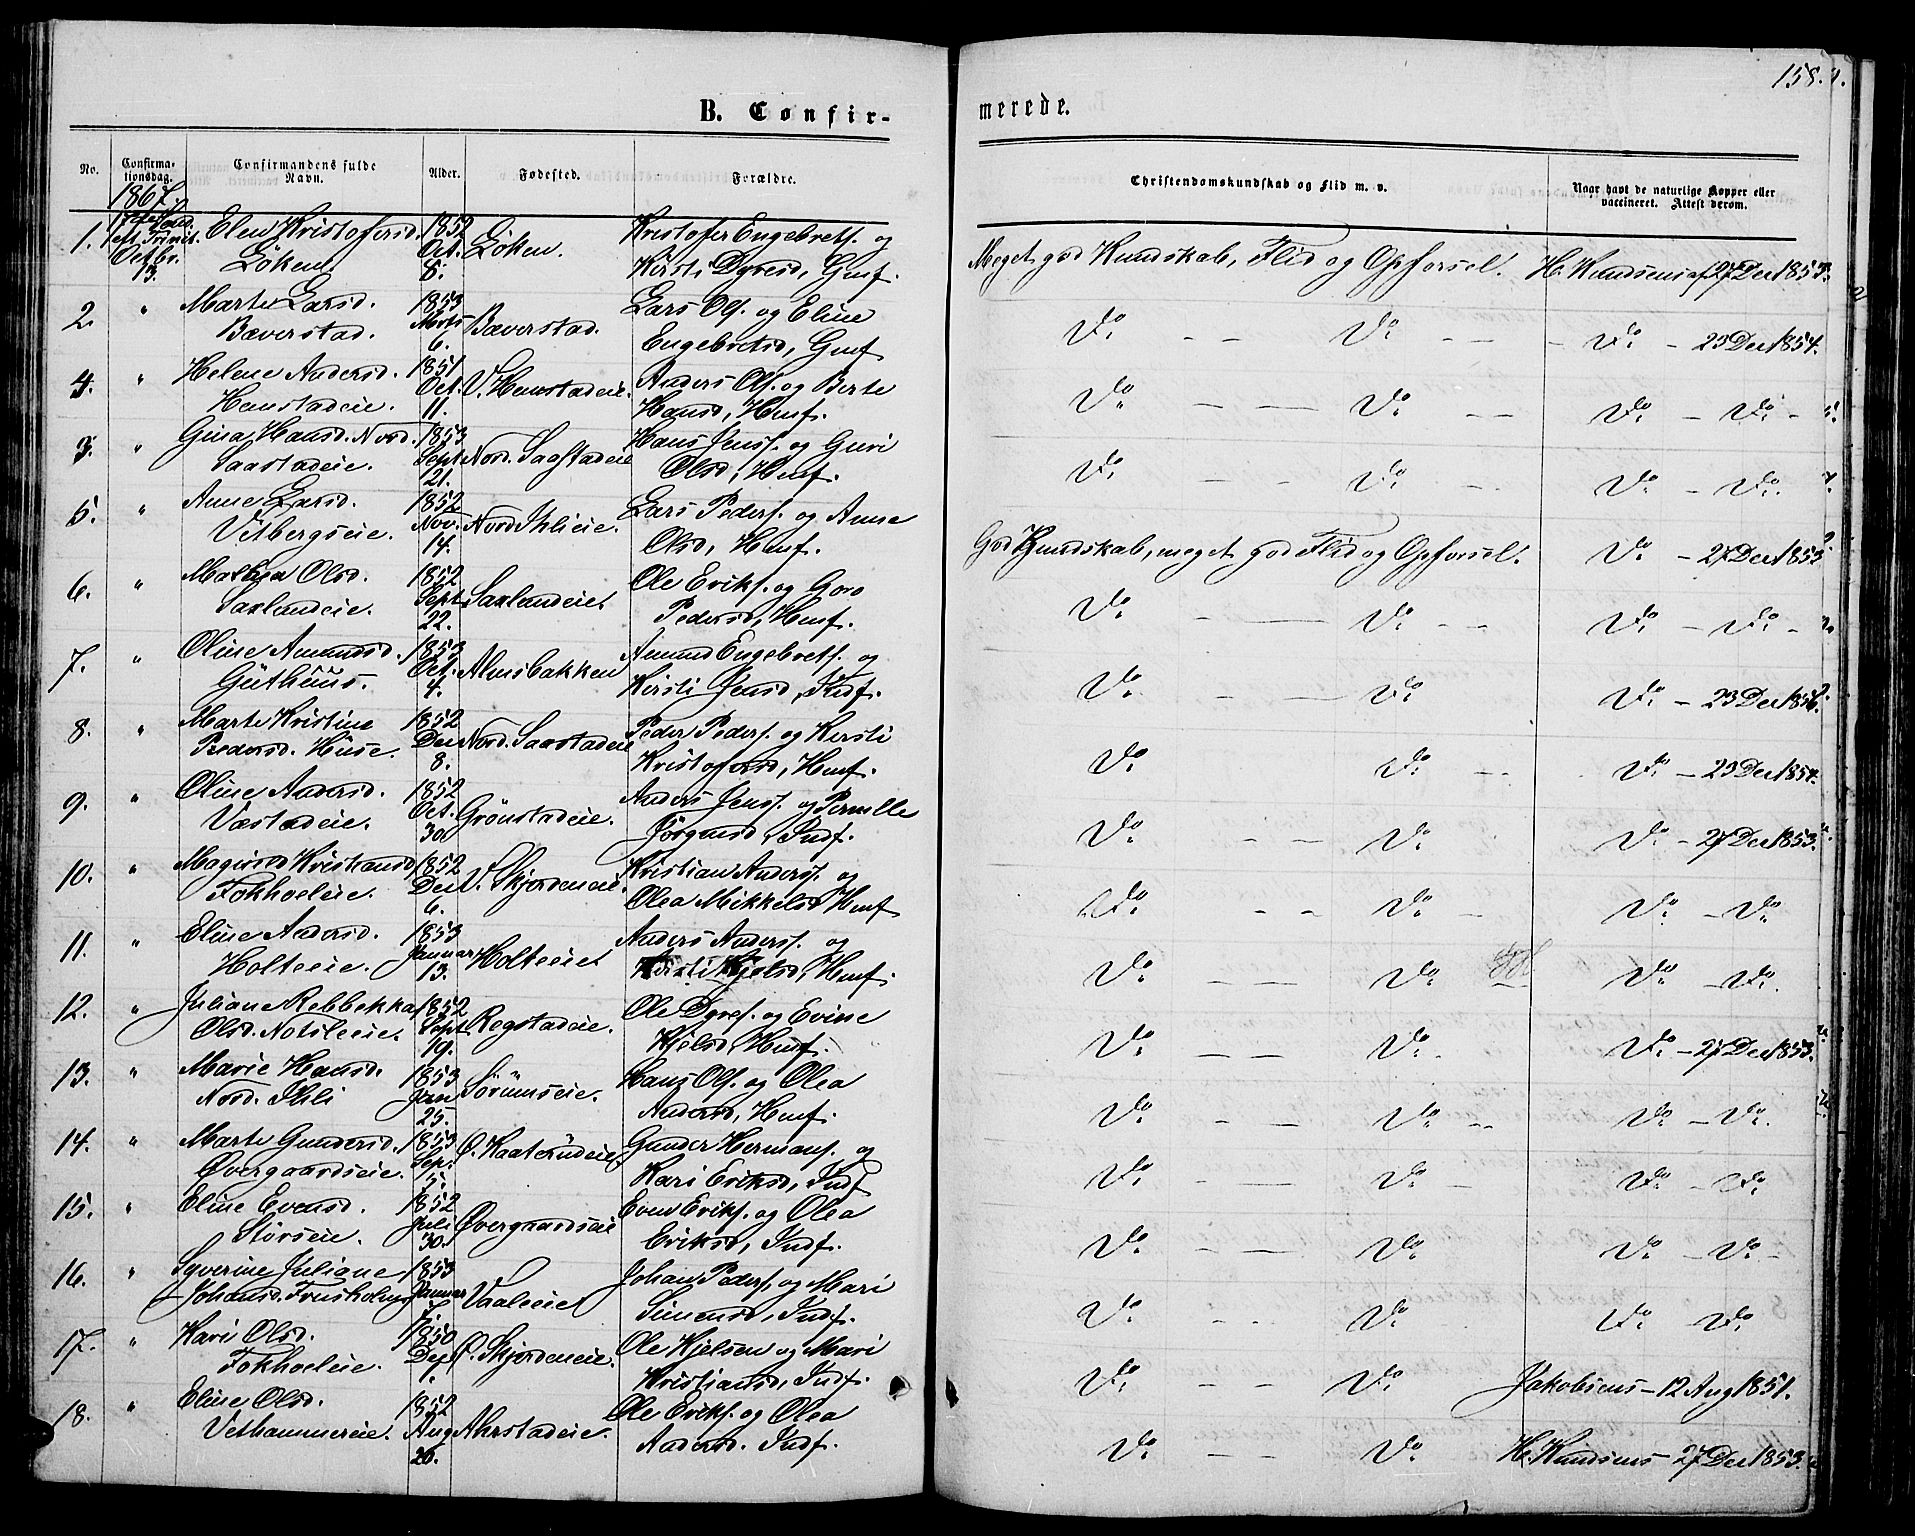 158.
B. Confir-
merede.
No.
Confirma-
tionsdag.
Confirmandens fulde
Navn.
Alder.
Fødested.
Forældre.
Christendomskundskab og Flid m. v.
Naar havt de naturlige Kopper eller
vaccineret. Attest derom.
1867.
1. eft. Trinit. Octbr. 13. Elen Kristofersd. Löken. 1852 Oct. 8. Löken. Kristofer Engebretf. og Kirsti Dyresd, Gmf. Meget god Kundskab, Flid og Opforsel. H. Knudsens af 27 Dec 1853.
2. " Marte Larsd. Bæverstad. 1853 Marts 6. Bæverstad. Lars Olf. og Eline Engebretsd, Gmf. Do - - Do - - - Do - 23 Dec 1854.
4. " Helene Andersd. Henstadeie. 1851 Oct. 11. V. Henstadeie. Anders Olf. og Berte Hansd, Hmf. Do - - Do - - Do - Do -
3. " Gina Hansd. Nord. Saastadeie. 1853 Sept 21. Nord. Saastadeie Hans Jensf. og Guri Olsd, Hmf. Do - - Do - Do - Do.
5. " Anne Larsd. Vitbergseie. 1852 Nov. 14. Nord Ihlieie. Lars Pedersf. og Anne Olsd, Hmf. God Kundskab, meget god Flid og Opforsel. Do - 27 Dec 1853
6. " Mathea Olsd. Saxlundeie. 1852 Sept 22. Saxlundeiet Ole Eriksf. og Goro Pedersd, Hmf. Do - - Do - - Do - Do -
7. " Oline Amundsd. Guthuus. 1853 Oct. 4. Almsbakken Amund Engebretf. og Kirsti Jensd, Indf. Do - - Do Do - 23 Dec 1856.
8. " Marte Kristine Pedersd. Huse. 1852 Dec 8. Nord. Saastadeie Peder Pedersf. og Kersti Kristofersd, Hmf. Do Do - - Do - 23 Dec 1854.
9. " Oline Andersd. Væstadeie. 1852 Oct. 30 Grönstadeie. Anders Jensf. og Pernille Jörgensd, Indf. Do - - Do Do - 27 Dec 1853.
10. " Kristiansd Fokhoeleie. 1852 Dec 6. V. Skjördeneie. Kristian Andersf. og Olea Mikkelsd, Hmf Do - - Do - Do - Do
11. " Eline Andersd. Holteeie. 1853 Januar 13. Holteeiet Anders Andersf. og Kirsti Kjelsd, Hmf. Do - - Do - Do - Do.
12. " Juliane Rebbekka Olsd. Notsleeie. 1852 Sept 19. Rogstadeie. Ole Dyref. og Evine Kjelsd, Hmf. Do - - Do - Do - 27 Dec 1853.
13. " Marie Hansd. Nord. Ihli 1853 Jan 25. Sörumseie. Hans Olf. og Olea Andersd, Hmf. Do - - Do - - Do - Do.
14. " Marte Gundersd. Overgaardseie. 1853 Sep. 5. Ø. Kaaterudeie Gunder Hermansf. og Kari Eriksd, Indf Do - - Do - Do - Do.
15. " Eline Evensd. Störseie. 1852 Juli 30. Øvergaardseie Even Eriksf. og Olea Eriksd, Indf. Do - - Do Do - Do -
16. " Syverine Juliane Johansd. 1853 Januar 7. Vaaleeiet Johan Pedersf. og Mari Simensd, Indf. Do - - Do Do - Do.
17. " Karie Olsd. Fokhoeleie. 1850 Dec 1. Ø. Skjördeneie. Ole Kjelsen og Mari Kristiansd, Indf. Do - - Do Jakobsens - 12 Aug 1851.
18. " Eline Olsd. Vethammereie. 1852 Aug 26. Ahrstadeie. Ole Eriksf. og Olea Andersd. Indf. Do - - Do H. Knudsens - 27 Dec 1853.